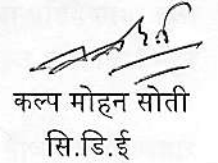 कल्प मोहन सोती
सि.डि.ई